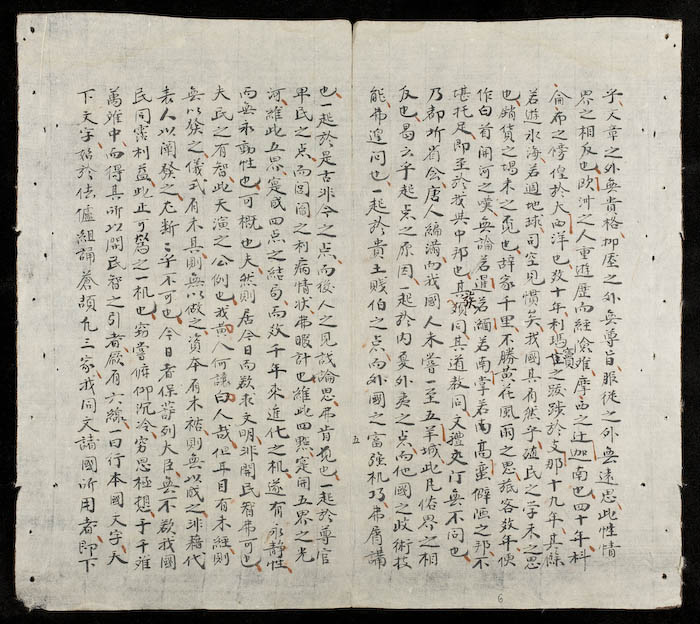 乎天章之外無貴格柳屋之外無尊旨服徒之外無遠思此性情
界之相反也歐洲之人重遊歷而經險难摩西之辻迦南也四十年科
侖布之傍徨於大西洋也数十年利瑪竇之跋踄於支那十九年其餘
若遊氷海若週地球司空見慣矣我國其有然乎殖民之字未之思
也貨之埸未之覓也辞家千里不勝花風雨之思旅客数年便
作白首関河之嘆無論若暹若緬若南掌若南高蛮僻陋之邦不
堪托足即至於我與中邦也其族類同其道教同文禮無不同也
乃都圻省會唐人編滿而我國人未嘗一至五羊城此凡佑界之相
反也曷云乎起点之原因一起於内夏外夷之点而他國之政術技
能弗遑问也一起於貴王賤伯之点而外國之富強机巧弗屑講
五
也一起於是古非今之点而後人之見識論思弗肯覽也一起於尊官
卑民之点而閭閻之利病情状弗暇計也維此四點寔開五界之先
河維此五界寔或四点之結局而数千年來進化之机遂有永静性
而無永動性也可慨也夫然則居今日而欲求文明非開民智弗可也
夫民之有智此天演之公例也我黄人何讓白人哉但耳目有未經則
無以發之儀式有未具則無以做之資本有未裕則無以成之非藉代
表人以闡發之尤断断乎不可也今日者保護列大臣無不欲我國
民同霑利益此正可為之一机也窃嘗俯仰沉冷窮思極想于千难
萬难中而得其所以開民智之引者厥有六線一曰行本國文字天
下文字始於佉盧徂誦蒼頡凡三家我同文諸國所用者即下
6